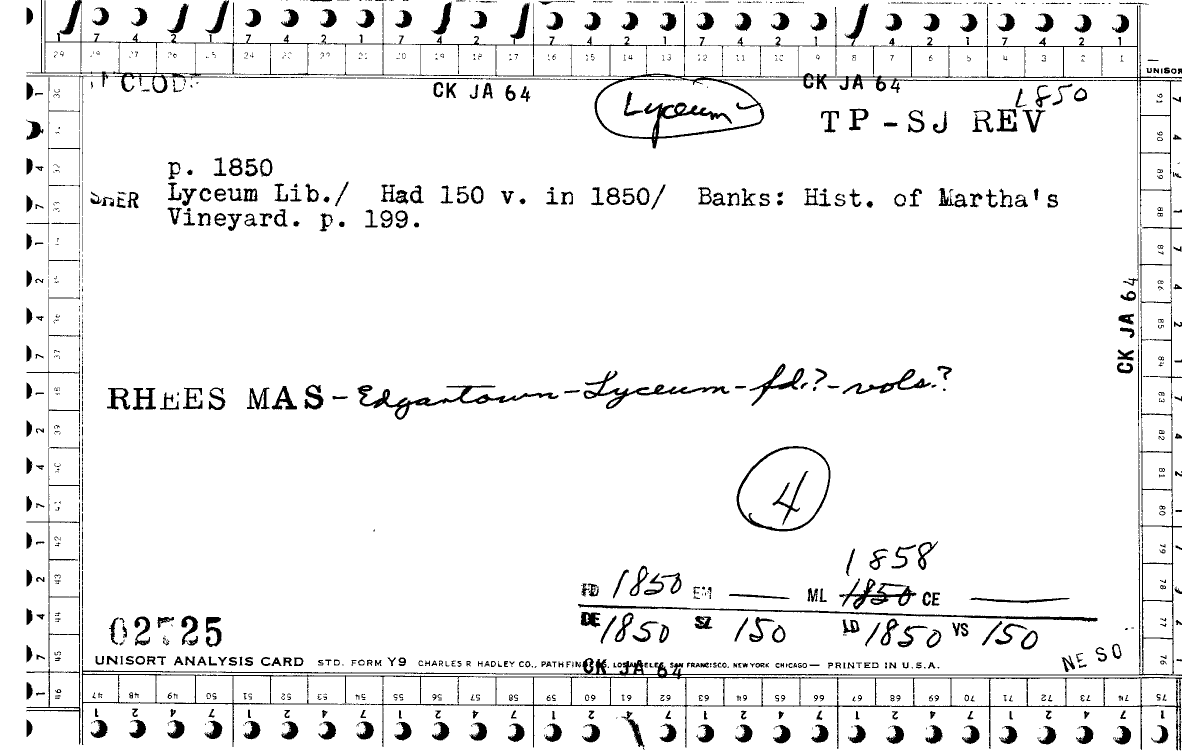 1 7 4 2 1 7 4 2 1 7 4 2 1 7 4 2 1 7 4 2 1 7 4 2 1 7 4 2 1
29 27 26 25 24 21 20 19 18 17 16 15 14 13 12 11 10 9 8 7 6 5 4 3 2 1
UNISOR
CK JA 64
Lyceum
CK JA 64
1850
TP-SJ REV
p. 1850
SHER Lyceum Lib./ Had 150 v. in 1850/ Banks: Hist. of Martha's
Vineyard. p. 199.
CK JA 64
RHEES MAS - Edgartown - Lyceum - fd.? - vols.?
4
1858
FD 1850 EM — ML 1850 CE —
DE 1850 SZ 150 LD 1850 VS 150
02725
NE SO
UNISORT ANALYSIS CARD STD. FORM Y9 CHARLES R HADLEY CO., PATHFINDERS, LOS ANGELES, SAN FRANCISCO, NEW YORK CHICAGO — PRINTED IN U.S.A.
CK JA 64
46 47 48 49 50 51 52 53 54 55 56 57 58 59 60 61 62 63 64 65 66 67 68 69 70 71 72 73 74 75